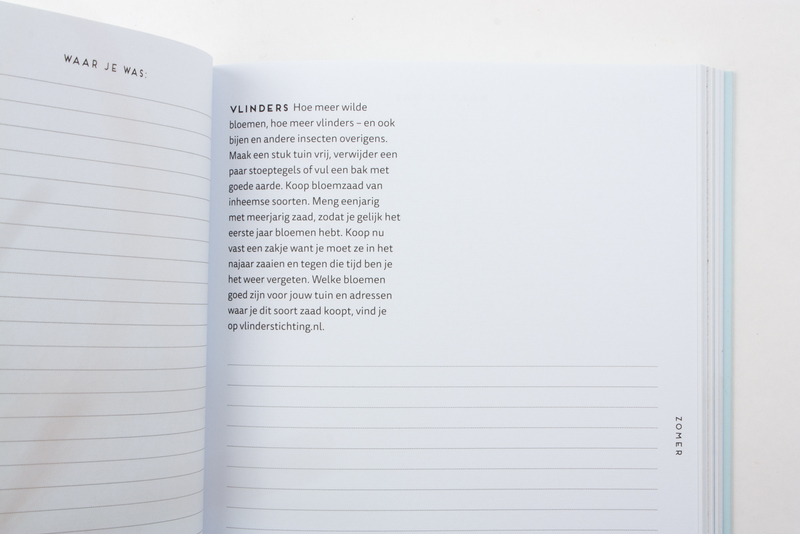 WAAR JE WAS:
VLINDERS Hoe meer wilde
bloemen, hoe meer vlinders – en ook
bijen en andere insecten overigens.
Maak een stuk tuin vrij, verwijder een
paar stoeptegels of vul een bak met
goede aarde. Koop bloemzaad van
inheemse soorten. Meng eenjarig
met meerjarig zaad, zodat je gelijk het
eerste jaar bloemen hebt. Koop nu
vast een zakje want je moet ze in het
najaar zaaien en tegen die tijd ben je
het weer vergeten. Welke bloemen
goed zijn voor jouw tuin en adressen
waar je dit soort zaad koopt, vind je
op vlinderstichting.nl.
ZOMER